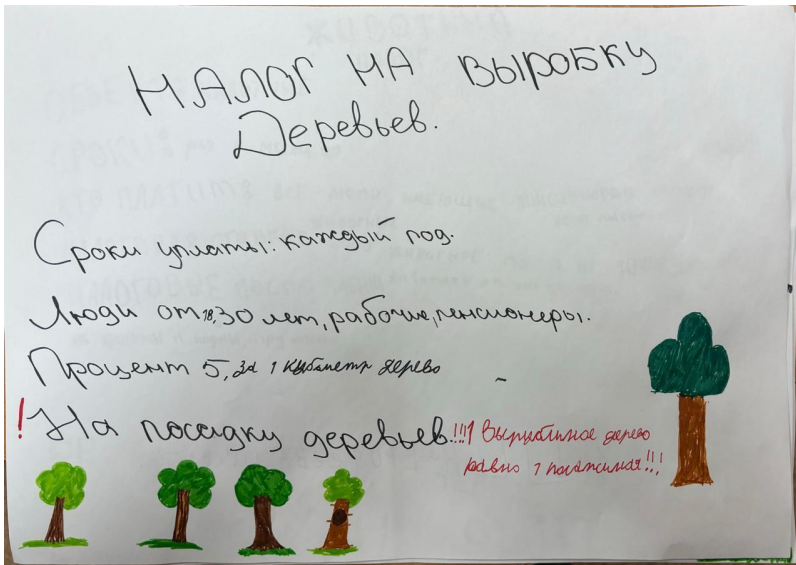 НАЛОГ НА ВЫРОБКУ
Деревьев.
Сроки уплаты: каждый год.
Люди от 18,30 лет, рабочие, пенсионеры.
Процент 5, за 1 кубаметр дерево
! На посадку деревьев!!!
1 Вырубиное дерево
равно 1 посажиная!!!